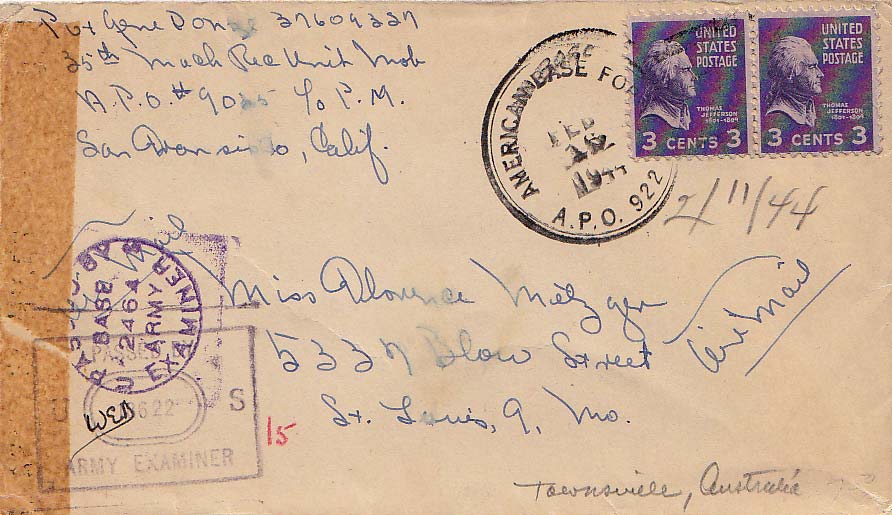 Pvt Gene Donze 37609337
35th Mach Rec Unit Mob
A.P.O. # 9025 c/o P.M.
San Francisco, Calif.
AMERICAN BASE FOR
FEB
1944
A.P.O. 922
UNITED STATES POSTAGE
THOMAS JEFFERSON
1801-1809
3 CENTS 3
UNITED STATES POSTAGE
THOMAS JEFFERSON
1801-1809
3 CENTS 3
2/11/44
Air Mail
PASSED BY
BASE
2246A
ARMY
EXAMINER
Miss Florence Metzger
5337 Blow Street
St. Louis, 9, Mo.
Air Mail
PASSED
U 622 S
WED
ARMY EXAMINER
15
Townsville, Australia